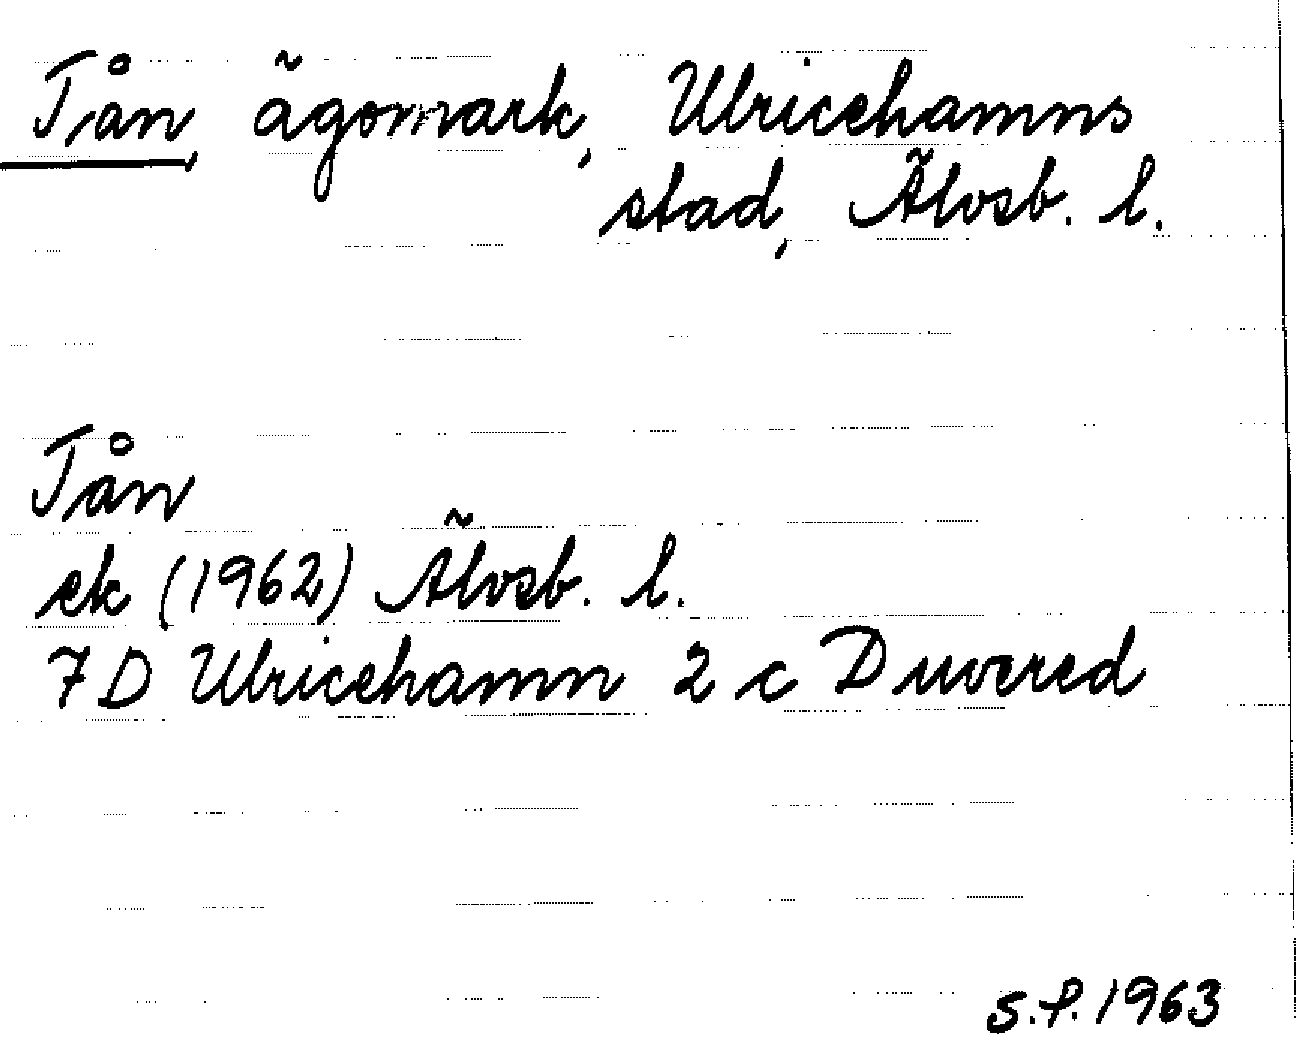 Tån, ägomark, Ulricehamns
stad, Älvsb. l.
Tån
ek (1962) Älvsb. l.
7D Ulricehamn 2 c Duvered
S.P. 1963